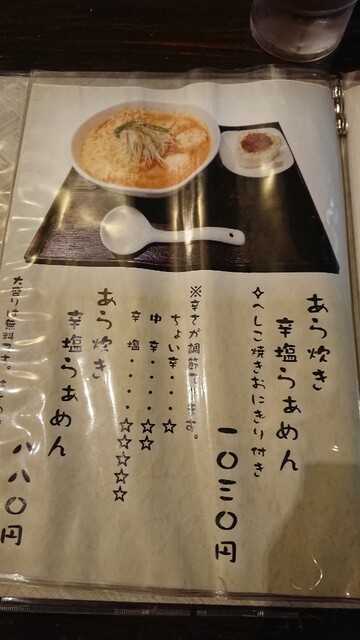 あら炊き
辛塩らぁめん
✧へしこ焼きおにぎり付き
一〇三〇円
※辛さが調節できます。
ちょい辛・・・・☆
中辛・・・・☆☆
辛塩・・・・☆☆☆☆☆
あら炊き
辛塩らぁめん
八八〇円
大盛りは無料です。